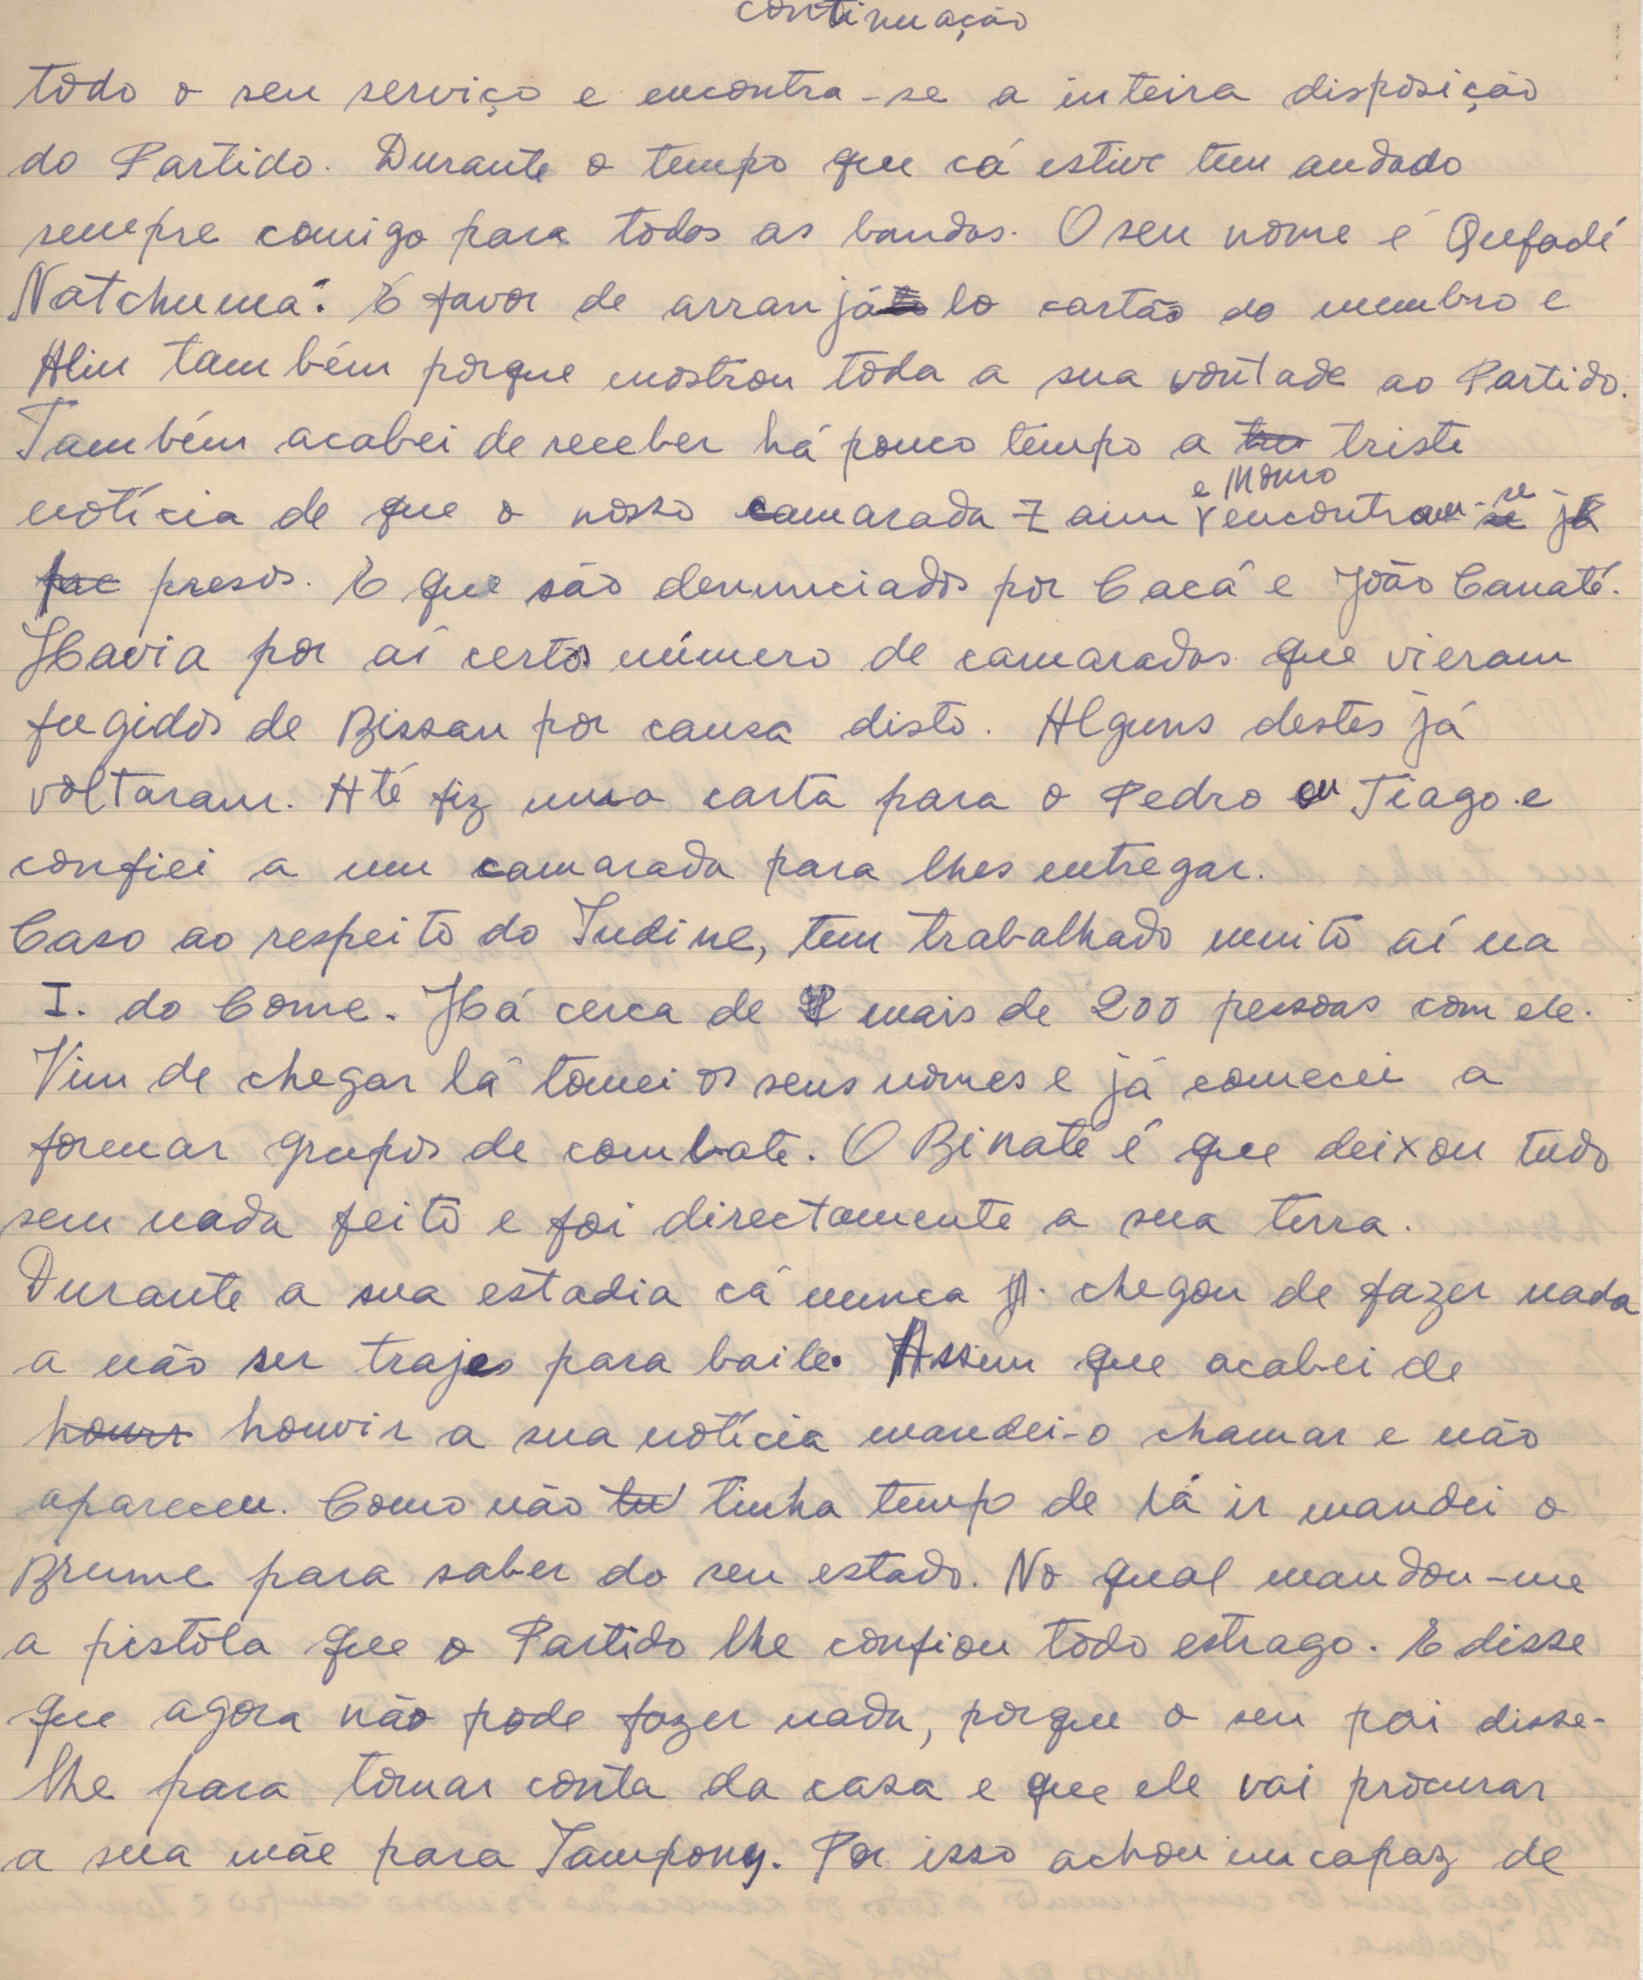 continuação
todo o seu serviço e encontra-se a inteira disposição
do Partido. Durante o tempo que cá estive tem andado
sempre comigo para todos as bandas. O seu nome é Quefadé
Natchuma. É favor de arranjá lo cartão do membro e
Aliu também porque mostrou toda a sua vontade ao Partido.
Também acabei de receber há pouco tempo a triste
notícia de que o nosso camarada Zaim e Momo encontram-se já
presos. E que são denunciados por Cacá e João Canaté.
Havia por aí certos número de camarados que vieram
fugidos de Bissau por causa disto. Alguns destes já
voltaram. Até fiz uma carta para o Pedro ou Tiago e
confiei a um camarada para lhes entregar.
Caso ao respeito do Tudine, tem trabalhado muito aí na
I. do Come. Há cerca de mais de 200 pessoas com ele.
Vim de chegar lá tomei os seus nomes e já comecei a
formar grupos de combate. O Binaté é que deixou tudo
sem nada feito e foi directamente a sua terra.
Durante a sua estadia cá nunca chegou de fazer nada
a não ser trajes para baile. Assim que acabei de
houvir a sua notícia mandei-o chamar e não
apareceu. Como não tinha tempo de lá ir mandei o
Brume para saber do seu estado. No qual mandou-me
a pistola que o Partido lhe confiou todo estrago. E disse
que agora não pode fazer nada, porque o seu pai disse-
lhe para tomar conta da casa e que ele vai procurar
a sua mãe para Tampony. Por isso achou incapaz de